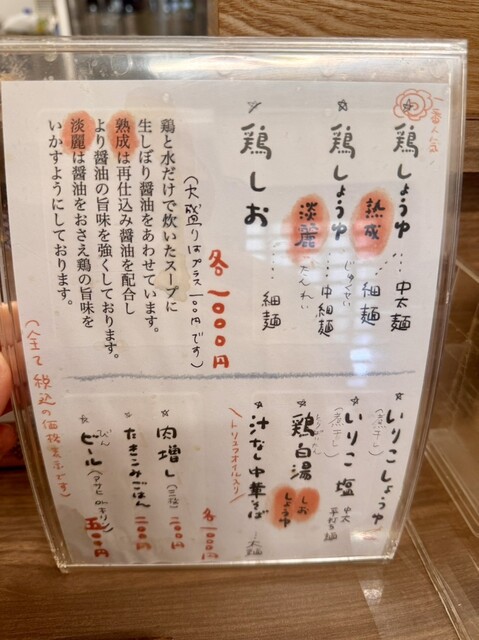 一番人気
☆鶏しょうゆ 熟成 … 中太麺
じゅくせい 細麺
☆鶏しょうゆ 淡麗 … 中細麺
たんれい
☆鶏しお …… 細麺
各一〇〇〇円
(大盛りはプラス一〇〇円です)
鶏と水だけで炊いたスープに
生しぼり醤油をあわせています。
熟成は再仕込み醤油を配合し
より醤油の旨味を強くしております。
淡麗は醤油をおさえ鶏の旨味を
いかすようにしております。
☆いりこしょうゆ
(煮干し)
☆いりこ塩 中太
(煮干し) 平打ち麺
☆鶏白湯 しお しょうゆ
☆汁なし中華そば … 太麺
トリュフオイル入り
各一〇〇〇円
☆肉増し(三枚) 二〇〇円
☆たきこみごはん 二〇〇円
☆びんビール(アサヒorキリン) 五〇〇円
(全て税込の価格表示です)